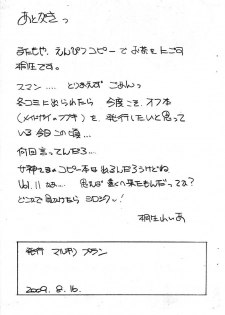 あとがきっ
またもや、えんぴつコピーでお茶をにごす
桐生です。
スマン.... とりあえず ごめんっ
冬コミに出られたら 今度こそ、オフ本
を、発行したいと思って
いる今日この頃...
何回言ってんだろ....
女神さまのコピー本は出るんだろうけどね。
Vol.11 かぁ... 思えば遠くへ来たもんだってか?
どこかで見かけたら ヨロシクッ!
桐生れいあ
発行 マルチプラン
2009. 8. 16.